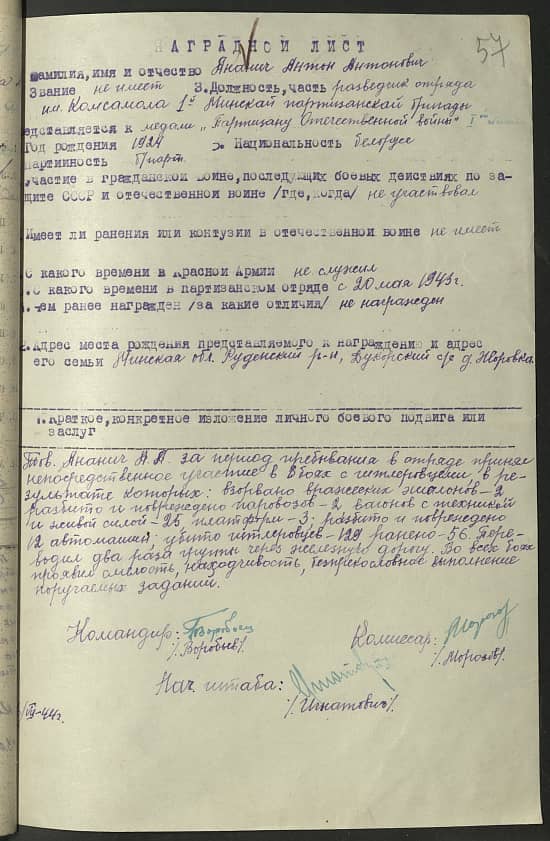 НАГРАДНОЙ ЛИСТ
57
Фамилия, имя и отчество Ананич Антон Антонович
Звание не имеет 3. Должность, часть разведчик отряда
им. Комсамола 1й Минской партизанской бригады
едставляется к медали „Партизану Отечественной войны" I
Год рождения 1924 Национальность белорусс
Партийность б/парт.
Участие в гражданской войне, последующих боевых действиях по за-
щите СССР и отечественной войне /где, когда/ не участвовал
Имеет ли ранения или контузии в отечественной войне не имеет
С какого времени в Красной Армии не служил
С какого времени в партизанском отряде с 20 мая 1943г.
Чем ранее награжден /за какие отличия/ не награжден
Адрес места рождения представляемого к награждению и адрес
его семьи Минская обл. Руденский р-н, Дукорский с/с д.
Краткое, конкретное изложение личного боевого подвига или
заслуг
Тов. Ананич А.А. за период пребывания в отряде принял
непосредственное участие в 8 боях с гитлеровцами, в ре-
зультате которых: взорвано вражеских эшалонов-2
разбито и повреждено паровозов-2 вагонов с техникой
и живой силой-25 платформ-3, разбито и повреждено
12 автомашин, убито гитлеровцев-129 ранено-56. Пере-
водил два раза группы через железную дорогу. Во всех боях
проявил смелость, находчивость, безприкословное выполнение
поручаемых заданий.
Командир: /Воробьев/
Комиссар: /Морозов/
Нач. штаба: /Игнатович/
44г.